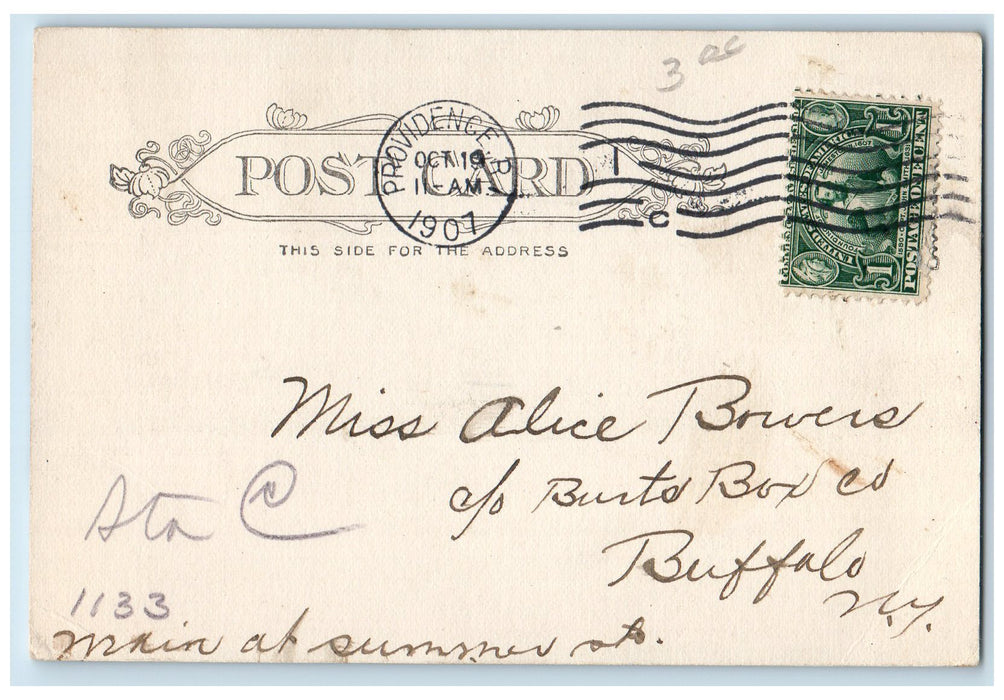 3 ac
PROVIDENCE, R.I.
OCT 19
11-AM
1907
1
C
POST CARD
THIS SIDE FOR THE ADDRESS
UNITED STATES OF AMERICA
1607
POSTAGE ONE CENT
1
Miss Alice Bowers
c/o Burts Box co
Buffalo
N.Y.
Sta C
1133
main at summer sts.